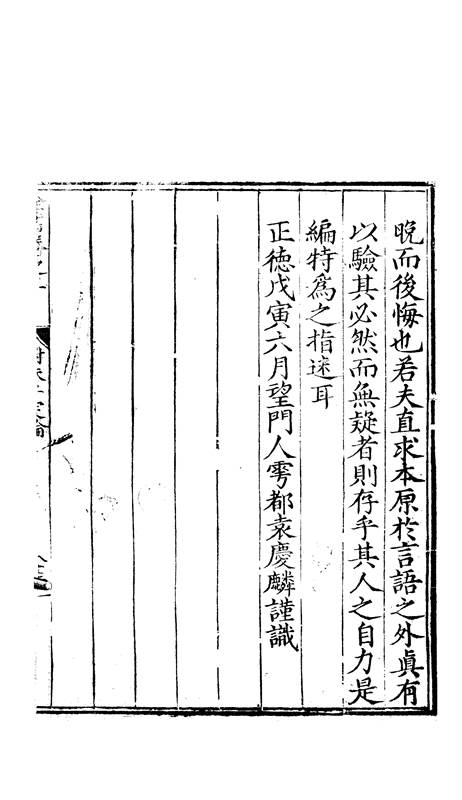 晚而後悔也若夫直求本原於言語之外眞有
以驗其必然而無疑者則存乎其人之自力是
編特爲之指迷耳
正德戊寅六月望門人雩都袁慶麟謹識